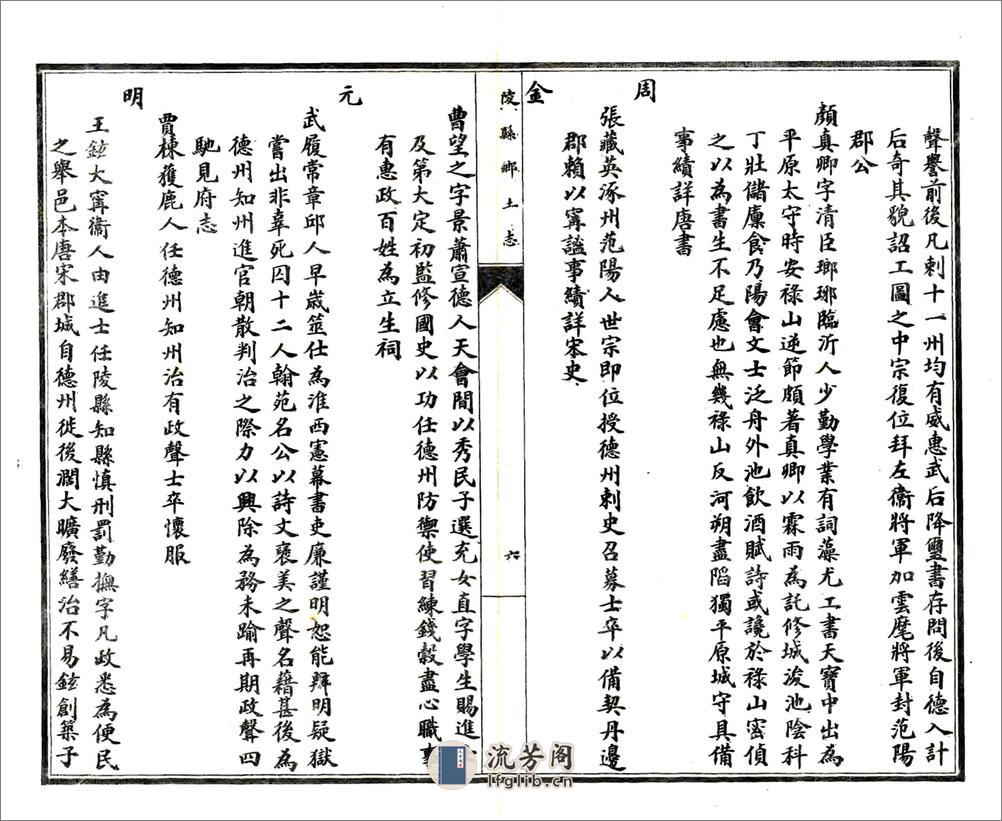 聲譽前後凡刺十一州均有威惠武后降璽書存問後自德入計
后奇其貌詔工圖之中宗復位拜左衞將軍加雲麾將軍封范陽
郡公
顏真卿字清臣瑯琊臨沂人少勤學業有詞藻尤工書天寶中出為
平原太守時安祿山逆節頗著真卿以霖雨為託修城浚池陰科
丁壯儲廩食乃陽會文士泛舟外池飲酒賦詩或讒於祿山密偵
之以為書生不足慮也無幾祿山反河朔盡陷獨平原城守具備
事績詳唐書
周
張藏英涿州范陽人世宗即位授德州刺史召募士卒以備契丹邊
郡賴以寗謐事績詳宋史
金
陵縣鄉土志
六
曹望之字景蕭宣德人天會間以秀民子選充女直字學生賜進
及第大定初監修國史以功任德州防禦使習練錢穀盡心職事
有惠政百姓為立生祠
元
武履常章邱人早歲筮仕為淮西憲幕書吏廉謹明恕能辨明疑獄
嘗出非辜死囚十二人翰苑名公以詩文褒美之聲名藉甚後為
德州知州進官朝散判治之際力以興除為務未踰再期政聲四
馳見府志
賈棟獲鹿人任德州知州治有政聲士卒懷服
明
王鉉大寗衞人由進士任陵縣知縣慎刑罰勤撫字凡政悉為便民
之舉邑本唐宋郡城自德州徙後濶大曠廢繕治不易鉉創築子
流芳阁
lfglib.cn